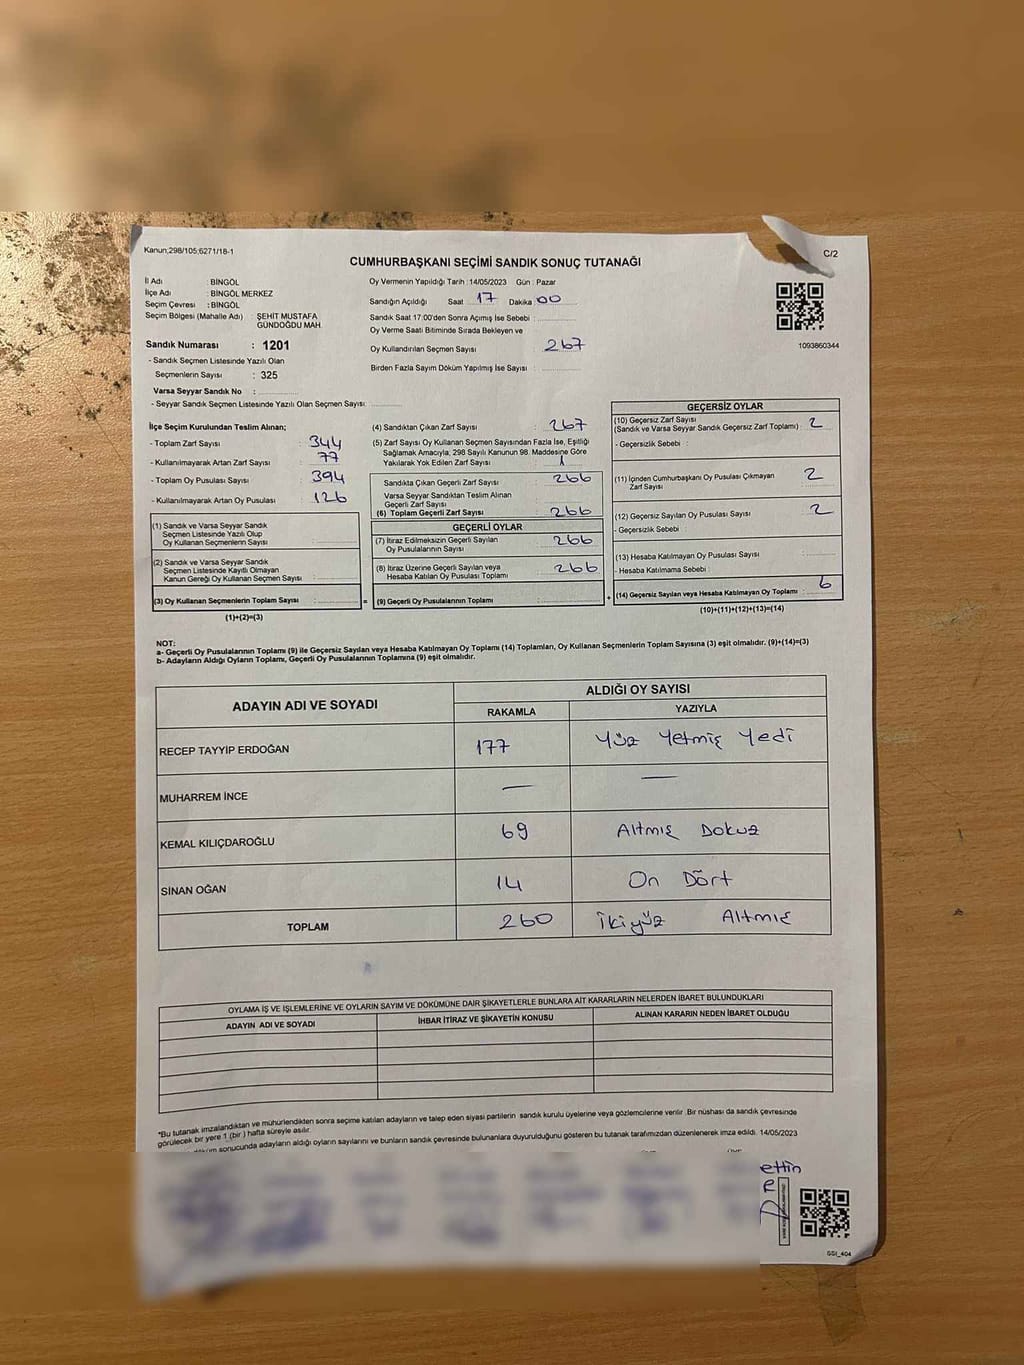 Kanun;298/105;6271/18-1
C/2
CUMHURBAŞKANI SEÇİMİ SANDIK SONUÇ TUTANAĞI
İl Adı : BİNGÖL
İlçe Adı : BİNGÖL MERKEZ
Seçim Çevresi : BİNGÖL
Seçim Bölgesi (Mahalle Adı) ŞEHİT MUSTAFA
GÜNDOĞDU MAH.
Sandık Numarası : 1201
- Sandık Seçmen Listesinde Yazılı Olan
Seçmenlerin Sayısı : 325
Varsa Seyyar Sandık No :
- Seyyar Sandık Seçmen Listesinde Yazılı Olan Seçmen Sayısı:
Oy Vermenin Yapıldığı Tarih :14/05/2023 Gün : Pazar
Sandığın Açıldığı Saat 17 Dakika 00
Sandık Saat 17:00'den Sonra Açımış İse Sebebi :
Oy Verme Saati Bitiminde Sırada Bekleyen ve
Oy Kullandırılan Seçmen Sayısı 267
Birden Fazla Sayım Döküm Yapılmış İse Sayısı :
1093860344
İlçe Seçim Kurulundan Teslim Alınan;
- Toplam Zarf Sayısı : 344
- Kullanılmayarak Artan Zarf Sayısı : 77
- Toplam Oy Pusulası Sayısı : 394
- Kullanılmayarak Artan Oy Pusulası : 126
(1) Sandık ve Varsa Seyyar Sandık
Seçmen Listesinde Yazılı Olup
Oy Kullanan Seçmenlerin Sayısı :
(2) Sandık ve Varsa Seyyar Sandık
Seçmen Listesinde Kayıtlı Olmayan
Kanun Gereği Oy Kullanan Seçmen Sayısı :
(3) Oy Kullanan Seçmenlerin Toplam Sayısı :
(1)+(2)=(3)
(4) Sandıktan Çıkan Zarf Sayısı : 267
(5) Zarf Sayısı Oy Kullanan Seçmen Sayısından Fazla İse, Eşitliği
Sağlamak Amacıyla, 298 Sayılı Kanunun 98. Maddesine Göre
Yakılarak Yok Edilen Zarf Sayısı : 1
Sandıkta Çıkan Geçerli Zarf Sayısı : 266
Varsa Seyyar Sandıktan Teslim Alınan
Geçerli Zarf Sayısı
(6) Toplam Geçerli Zarf Sayısı : 266
GEÇERLİ OYLAR
(7) İtiraz Edilmeksizin Geçerli Sayılan
Oy Pusulalarının Sayısı : 266
(8) İtiraz Üzerine Geçerli Sayılan veya
Hesaba Katılan Oy Pusulası Toplamı : 266
= (9) Geçerli Oy Pusulalarının Toplamı :
GEÇERSİZ OYLAR
(10) Geçersiz Zarf Sayısı
(Sandık ve Varsa Seyyar Sandık Geçersiz Zarf Toplamı) : 2
- Geçersizlik Sebebi :
(11) İçinden Cumhurbaşkanı Oy Pusulası Çıkmayan
Zarf Sayısı 2
(12) Geçersiz Sayılan Oy Pusulası Sayısı : 2
- Geçersizlik Sebebi
(13) Hesaba Katılmayan Oy Pusulası Sayısı :
- Hesaba Katılmama Sebebi :
+ (14) Geçersiz Sayılan veya Hesaba Katılmayan Oy Toplamı : 6
(10)+(11)+(12)+(13)=(14)
NOT:
a- Geçerli Oy Pusulalarının Toplamı (9) ile Geçersiz Sayılan veya Hesaba Katılmayan Oy Toplamı (14) Toplamları, Oy Kullanan Seçmenlerin Toplam Sayısına (3) eşit olmalıdır. (9)+(14)=(3)
b- Adayların Aldığı Oyların Toplamı, Geçerli Oy Pusulalarının Toplamına (9) eşit olmalıdır.
ADAYIN ADI VE SOYADI
ALDIĞI OY SAYISI
RAKAMLA YAZIYLA
RECEP TAYYİP ERDOĞAN 177 Yüz Yetmiş Yedi
MUHARREM İNCE — —
KEMAL KILIÇDAROĞLU 69 Altmış Dokuz
SİNAN OĞAN 14 On Dört
TOPLAM 260 İkiyüz Altmış
OYLAMA İŞ VE İŞLEMLERİNE VE OYLARIN SAYIM VE DÖKÜMÜNE DAİR ŞİKAYETLERLE BUNLARA AİT KARARLARIN NELERDEN İBARET BULUNDUKLARI
ADAYIN ADI VE SOYADI İHBAR İTİRAZ VE ŞİKAYETİN KONUSU ALINAN KARARIN NEDEN İBARET OLDUĞU
*Bu tutanak imzalandıktan ve mühürlendikten sonra seçime katılan adayların ve talep eden siyasi partilerin sandık kurulu üyelerine veya gözlemcilerine verilir. Bir nüshası da sandık çevresinde
görülecek bir yere 1 (bir) hafta süreyle asılır.
döküm sonucunda adayların aldığı oyların sayılarını ve bunların sandık çevresinde bulunanlara duyurulduğunu gösteren bu tutanak tarafımızdan düzenlenerek imza edildi. 14/05/2023
ettin
SSI_404